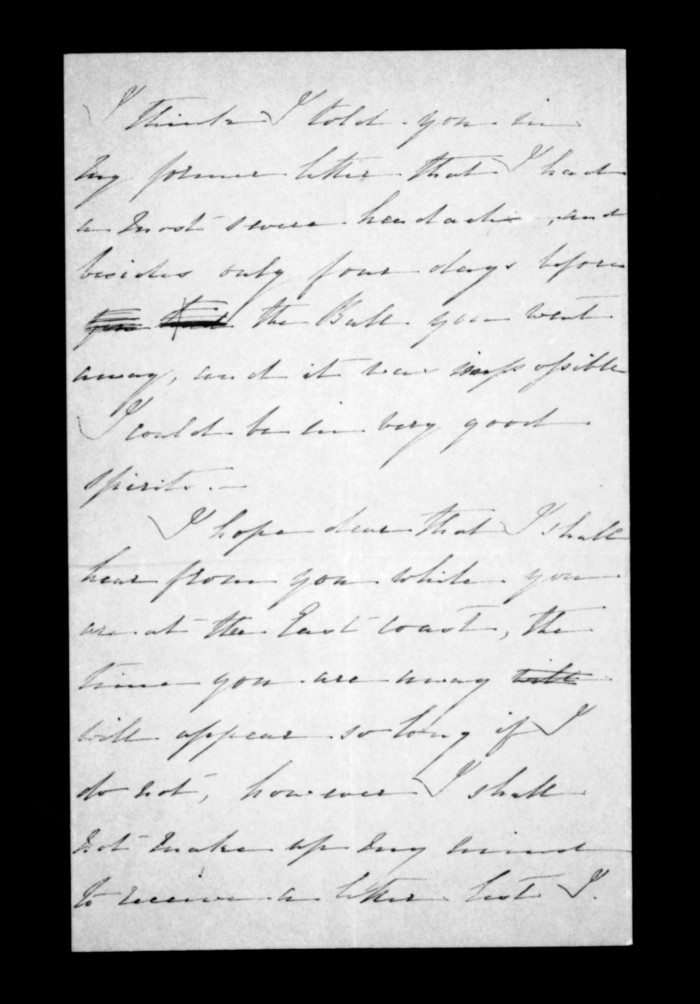 I think I told you in
my former letter that I had
a most severe headache, and
besides only four days before
the Ball you went
away, and it was impossible
I could be in very good
spirits. —
I hope dear that I shall
hear from you while you
are at the East coast, the
time you are away will
will appear so long if I
do not, however I shall
not make up my mind
to receive a letter lest I